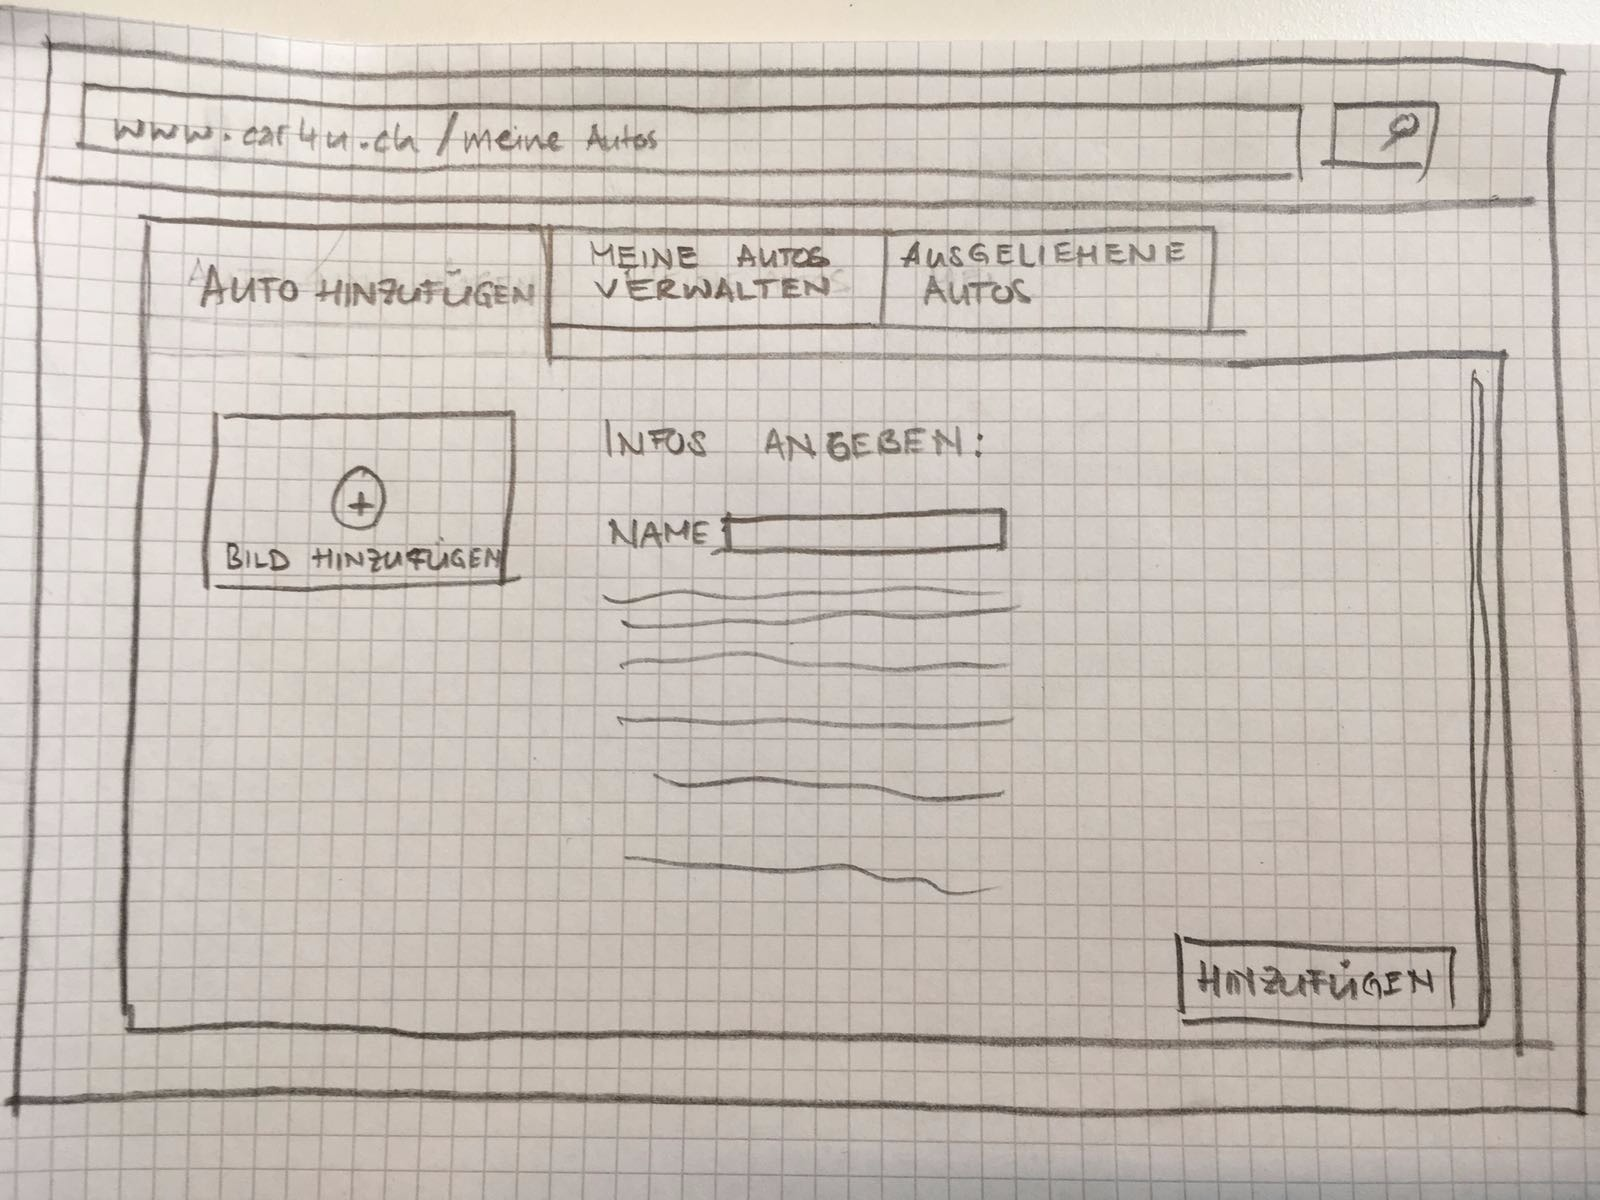 www.car4u.ch/meine Autos
AUTO HINZUFÜGEN
MEINE AUTOS
VERWALTEN
AUSGELIEHENE
AUTOS
+
BILD HINZUFÜGEN
INFOS ANGEBEN:
NAME:
HINZUFÜGEN